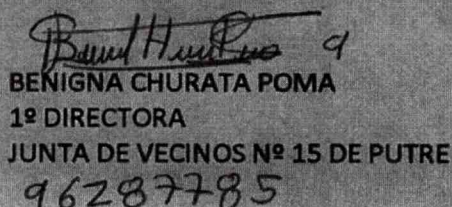 BENIGNA CHURATA POMA
1º DIRECTORA
JUNTA DE VECINOS Nº 15 DE PUTRE
96287785